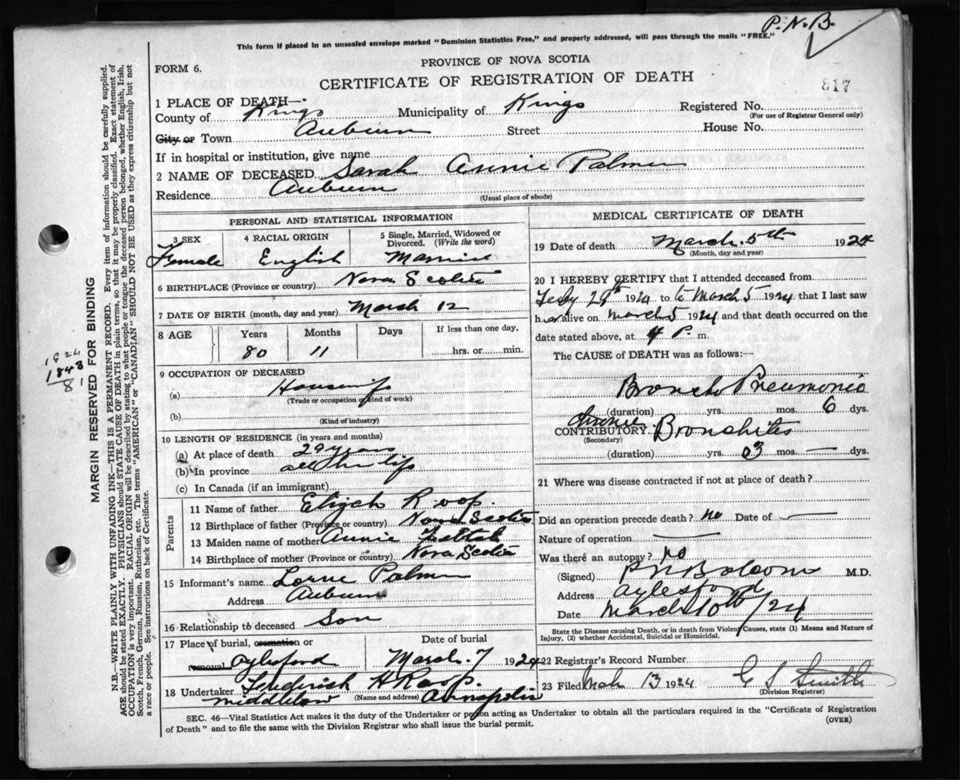 P.N.B.
This form if placed in an unsealed envelope marked "Dominion Statistics Free," and properly addressed, will pass through the mails "FREE."
PROVINCE OF NOVA SCOTIA
FORM 6.
CERTIFICATE OF REGISTRATION OF DEATH
817
1 PLACE OF DEATH—
County of Kings Municipality of Kings Registered No.
(For use of Registrar General only)
City or Town Auburn Street House No.
If in hospital or institution, give name
2 NAME OF DECEASED Sarah Annie Palmer
Residence Auburn
(Usual place of abode)
PERSONAL AND STATISTICAL INFORMATION
3 SEX 4 RACIAL ORIGIN 5 Single, Married, Widowed or Divorced. (Write the word)
Female English Married
6 BIRTHPLACE (Province or country) Nova Scotia
7 DATE OF BIRTH (month, day and year) March 12
8 AGE Years Months Days If less than one day,
80 11 hrs. or min.
9 OCCUPATION OF DECEASED
(a) Housewife
(Trade or occupation or kind of work)
(b)
(Kind of industry)
10 LENGTH OF RESIDENCE (in years and months)
(a) At place of death 29 years
(b) In province all her life
(c) In Canada (if an immigrant)
Parents
11 Name of father Elijah Roop
12 Birthplace of father (Province or country) Nova Scotia
13 Maiden name of mother Annie
14 Birthplace of mother (Province or country) Nova Scotia
15 Informant's name Lorne Palmer
Address Auburn
16 Relationship to deceased Son
17 Place of burial, cremation or removal Date of burial
Aylesford March 7 1924
18 Undertaker H Roop
Middleton (Name and address) Annapolis
MEDICAL CERTIFICATE OF DEATH
19 Date of death March 5th 1924
(Month, day and year)
20 I HEREBY CERTIFY that I attended deceased from
Feby 28th 1924 to March 5 1924 that I last saw
her alive on March 5 1924 and that death occurred on the
date stated above, at 4 P. m.
The CAUSE of DEATH was as follows:—
Broncho Pneumonia
(duration) yrs. mos. 6 dys.
Chronic
CONTRIBUTORY Bronchitis
(Secondary)
(duration) yrs. 03 mos. — dys.
21 Where was disease contracted if not at place of death?
Did an operation precede death? no Date of —
Nature of operation —
Was there an autopsy? no
(Signed) M.D.
Address Aylesford
Date March 10th/24
State the Disease causing Death, or in death from Violent Causes, state (1) Means and Nature of Injury, (2) whether Accidental, Suicidal or Homicidal.
22 Registrar's Record Number
23 Filed Mch 13 1924 Smith
(Division Registrar)
SEC. 46—Vital Statistics Act makes it the duty of the Undertaker or person acting as Undertaker to obtain all the particulars required in the "Certificate of Registration
of Death" and to file the same with the Division Registrar who shall issue the burial permit.
(OVER)
1924
1843
81
MARGIN RESERVED FOR BINDING
N.B.—WRITE PLAINLY WITH UNFADING INK—THIS IS A PERMANENT RECORD. Every item of information should be carefully supplied.
AGE should be stated EXACTLY. PHYSICIANS should STATE CAUSE OF DEATH in plain terms, so that it may be properly classified. Exact statement of
OCCUPATION is very important. RACIAL ORIGIN will be described by stating to what people or tongue the deceased person belonged, whether English, Irish,
Scotch, French, German, Russian, Ruthenian, etc. The terms "AMERICAN" or "CANADIAN" SHOULD NOT BE USED as they express citizenship but not
a race or people. See instructions on back of Certificate.